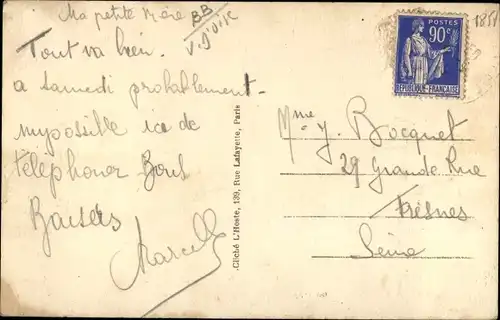 Ma petite mère
BB
Tout va bien.
a samedi probablement
impossible ici de
téléphoner Bons
Baisers
Marcel
Cliché L'Hoste, 139, Rue Lafayette, Paris
POSTES
90c
REPUBLIQUE-FRANÇAISE
Mme Y. Bocquet
29 Grande Rue
Fresnes
Seine